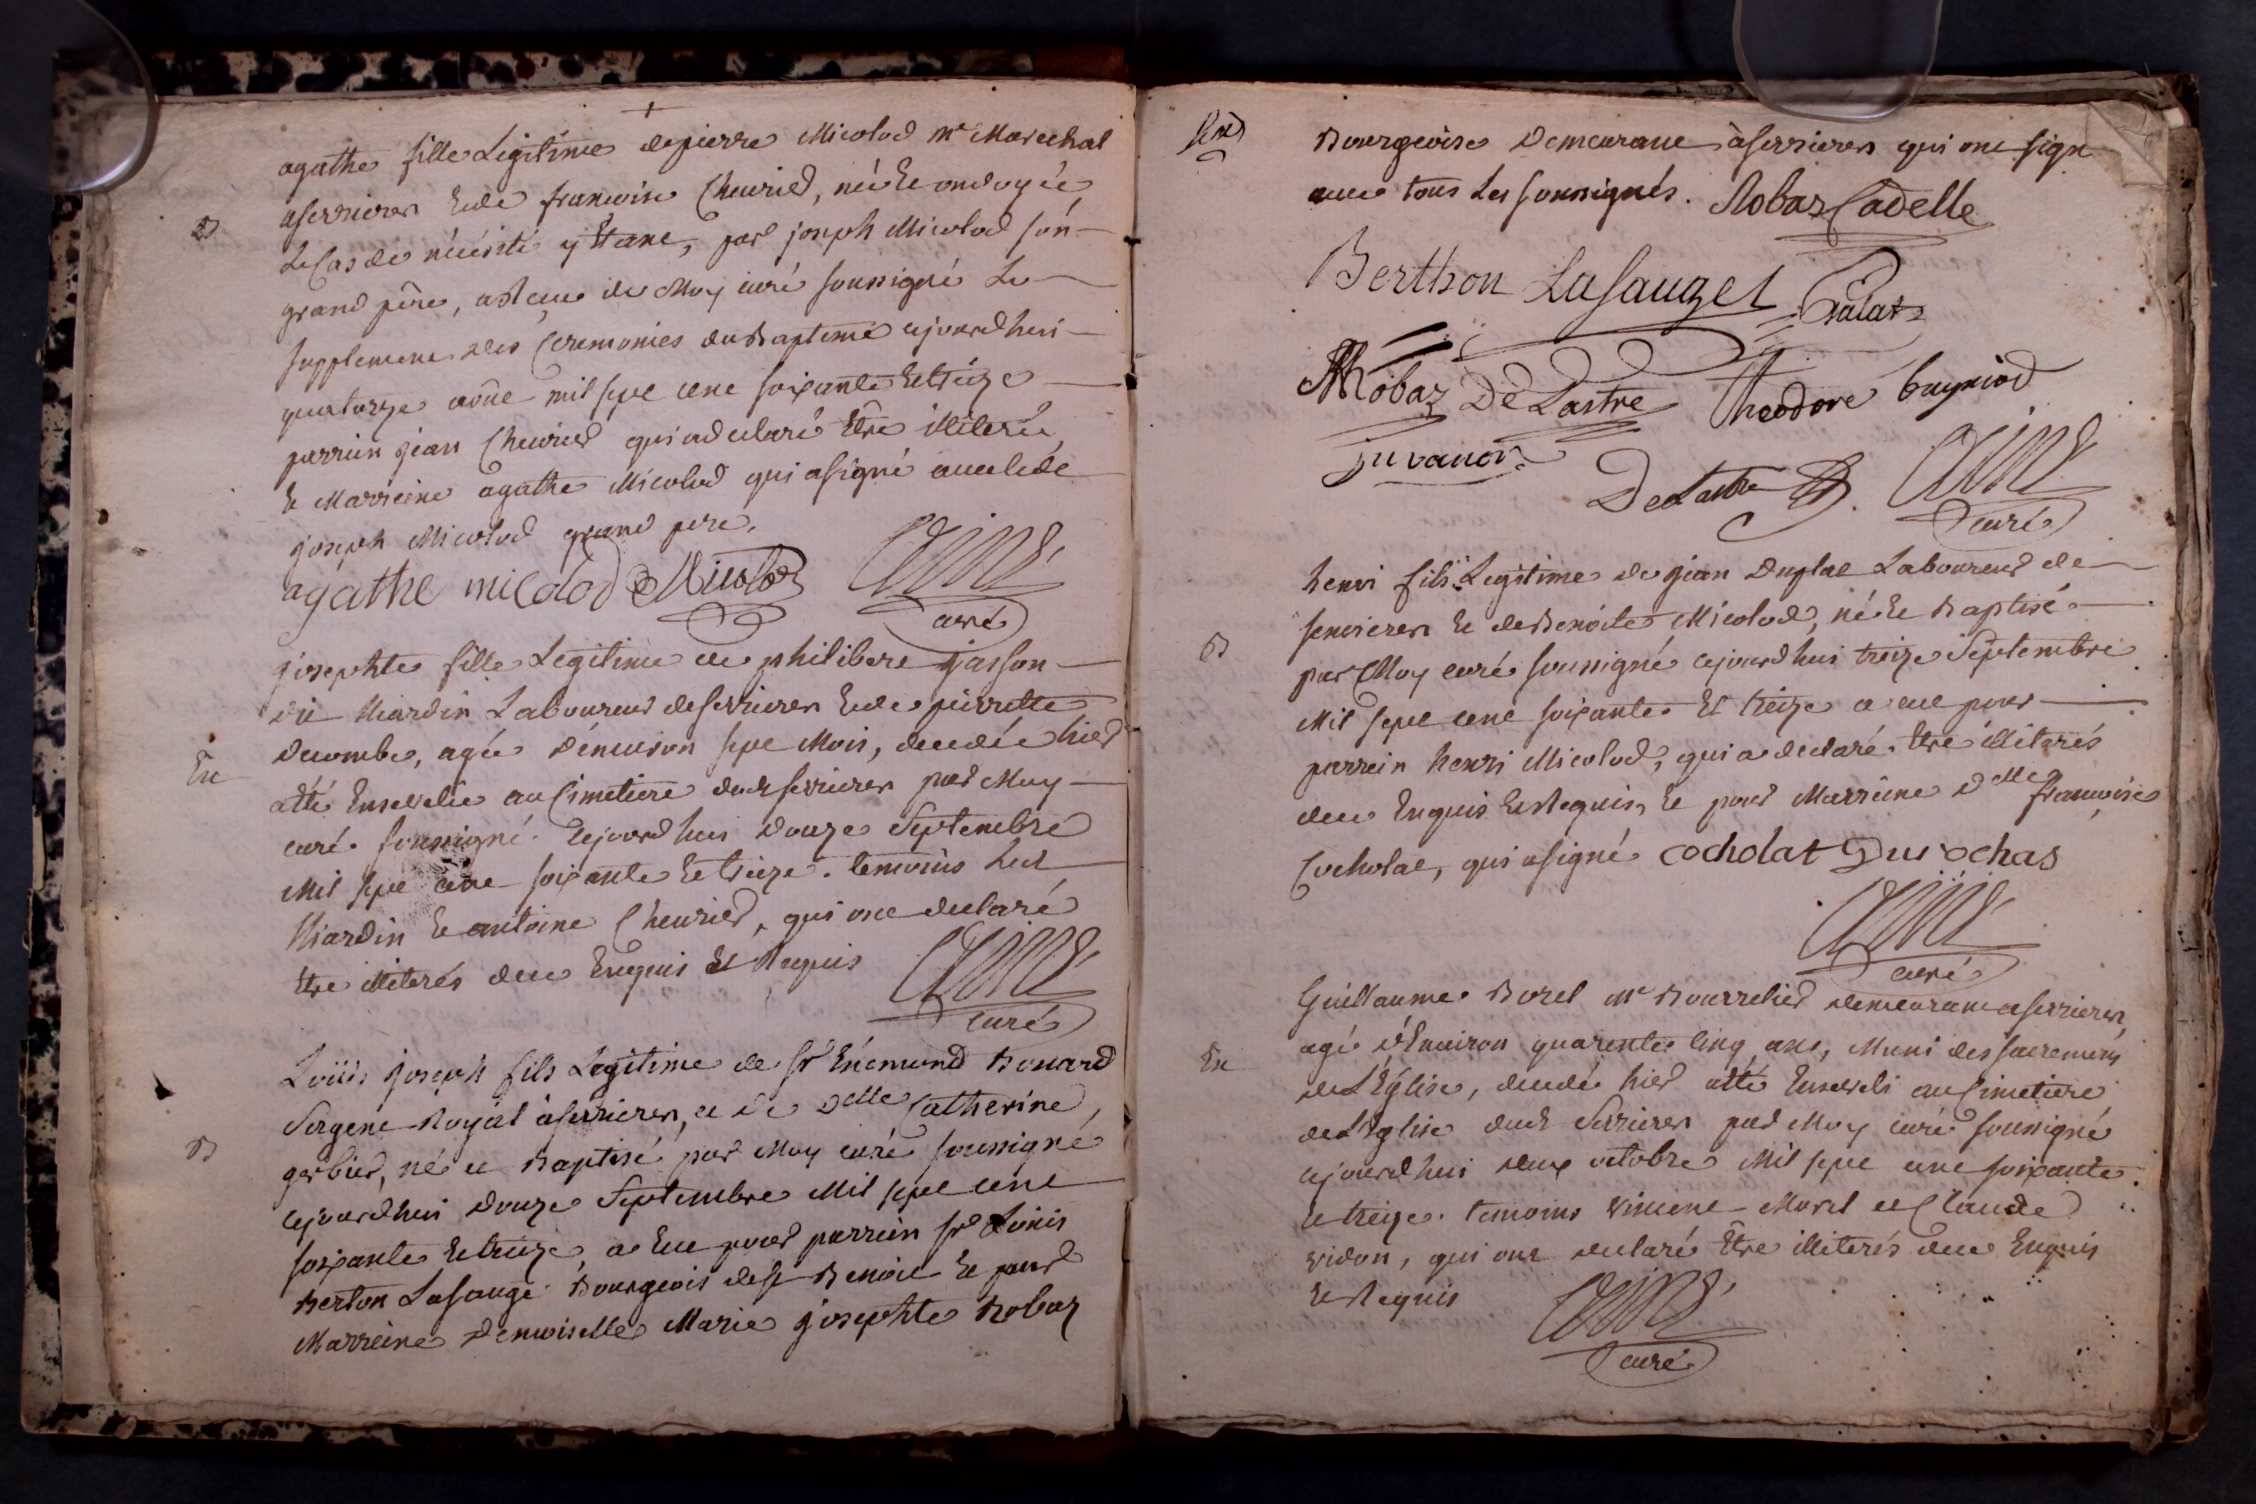 agathe fille Legitime de pierre Micolod Me Marechal
aserrieres Et de francoise Cheurier, née Et ondoyée
B
Le Cas de nécésité y Etant, par joseph Micolod son
grand pére, astcue de Moy curé soussigné Le
supplement des Ceremonies du Bapteme cejourdhui
quatorze aoûe mil sept cent soixante Et treize
parrein jean Cheurier qui adeclaré Etre illiteré,
Et Marreine agathe Micolod qui asigné avec ledt
joseph Micolod grand pere.
agathe micolod Micolod
curé
josephte fille Legitime de philibert jasson
dit Mardin Laboureur deserrieres Et de pierrette
Decombe, agée d'environ sept Mois, decedée hier
En
atté Ensevelie au Cimetiere dudt serrieres par Moy
curé soussigné cejourdhui douze Septembre
Mil sept cent soixante Et treize. temoins ledt
Mardin Et antoine Cheurier, qui ont declaré
Etre illiterés deue Enquis Et Requis
curé
Loüis joseph fils Legitime de sr Enémond Bouard
Sergent Royal àserrieres, et de Delle Catherine
B
gerbier, né et Baptisé par Moy curé soussigné
cejourdhui douze Septembre Mil sept cent
soixante Et treize, a Eue pour parrein sr Louis
Berton Lasauge Bourgeois de st Benoit Et pour
Marreine Demoiselle Marie josephte Robaz
Bourgeoise Demeurant àserrieres qui ont signé
avec tous Les soussignés. Robaz Cadelle
Berthon Lasauzet Palat
Robaz De Lastre Theodore bayniod
Juvanon
De Lastre
curé
henri fils Legitime de jean Duplat Laboureur de
serrieres Et de Benoite Micolod, né Et Baptisé
B
par Moy curé soussigné cejourdhui treize Septembre
Mil sept cent soixante Et treize a eue pour
parrein henri Micolod, qui a declaré Etre illiterés
deue Enquis Et Requis, Et pour Marreine Delle francoise
Cocholat, qui asigné cocholat Durochas
curé
Guillaume Borel Me Bourrelier demeurant aserrieres,
agé d'Environ quarente cinq ans, Muni des sacremens
En
de L'Eglise, decedé hier atté Enseveli au Cimetiere
de L'Eglise dudt Serrieres par Moy curé soussigné
cejourdhui deux octobre Mil sept cent soixante
et treize. temoins vincent Morel et Claude
vidon, qui ont declaré Etre illiterés deue Enquis
Et Requis
curé